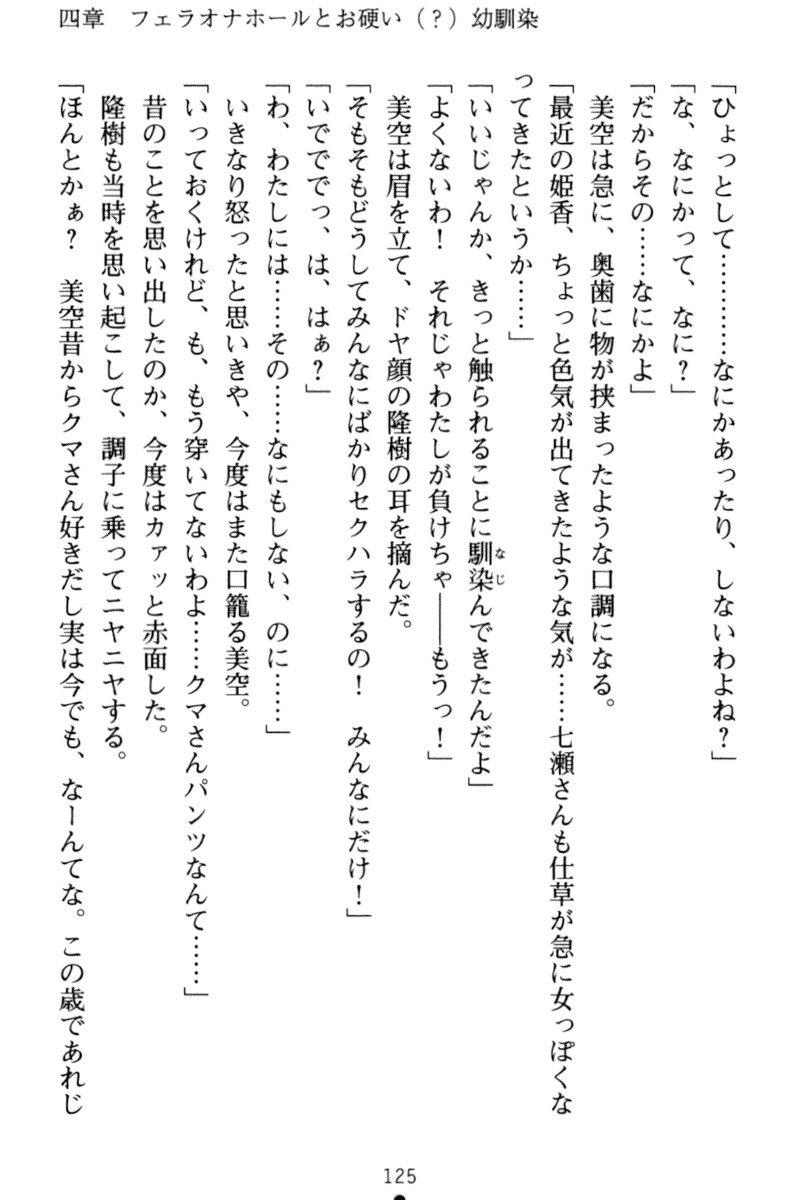 四章　フェラオナホールとお硬い（？）幼馴染
「ひょっとして…………なにかあったり、しないわよね？」
「な、なにかって、なに？」
「だからその……なにかよ」
　美空は急に、奥歯に物が挟まったような口調になる。
「最近の姫香、ちょっと色気が出てきたような気が……七瀬さんも仕草が急に女っぽくな
ってきたというか……」
「いいじゃんか、きっと触られることに馴染んできたんだよ」
なじ
「よくないわ！　それじゃわたしが負けちゃ――もうっ！」
　美空は眉を立て、ドヤ顔の隆樹の耳を摘んだ。
「そもそもどうしてみんなにばかりセクハラするの！　みんなにだけ！」
「いでででっ、は、はぁ？」
「わ、わたしには……その……なにもしない、のに……」
　いきなり怒ったと思いきや、今度はまた口籠る美空。
「いっておくけれど、も、もう穿いてないわよ……クマさんパンツなんて……」
　昔のことを思い出したのか、今度はカァッと赤面した。
　隆樹も当時を思い起こして、調子に乗ってニヤニヤする。
「ほんとかぁ？　美空昔からクマさん好きだし実は今でも、なーんてな。この歳であれじ
125